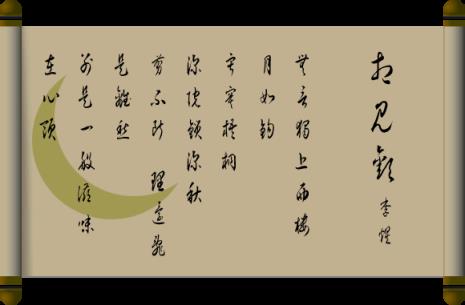 相見歡 李煜
無言獨上西樓
月如鉤
寂寞梧桐
深院鎖深秋
剪不斷 理還亂
是離愁
別是一般滋味
在心頭